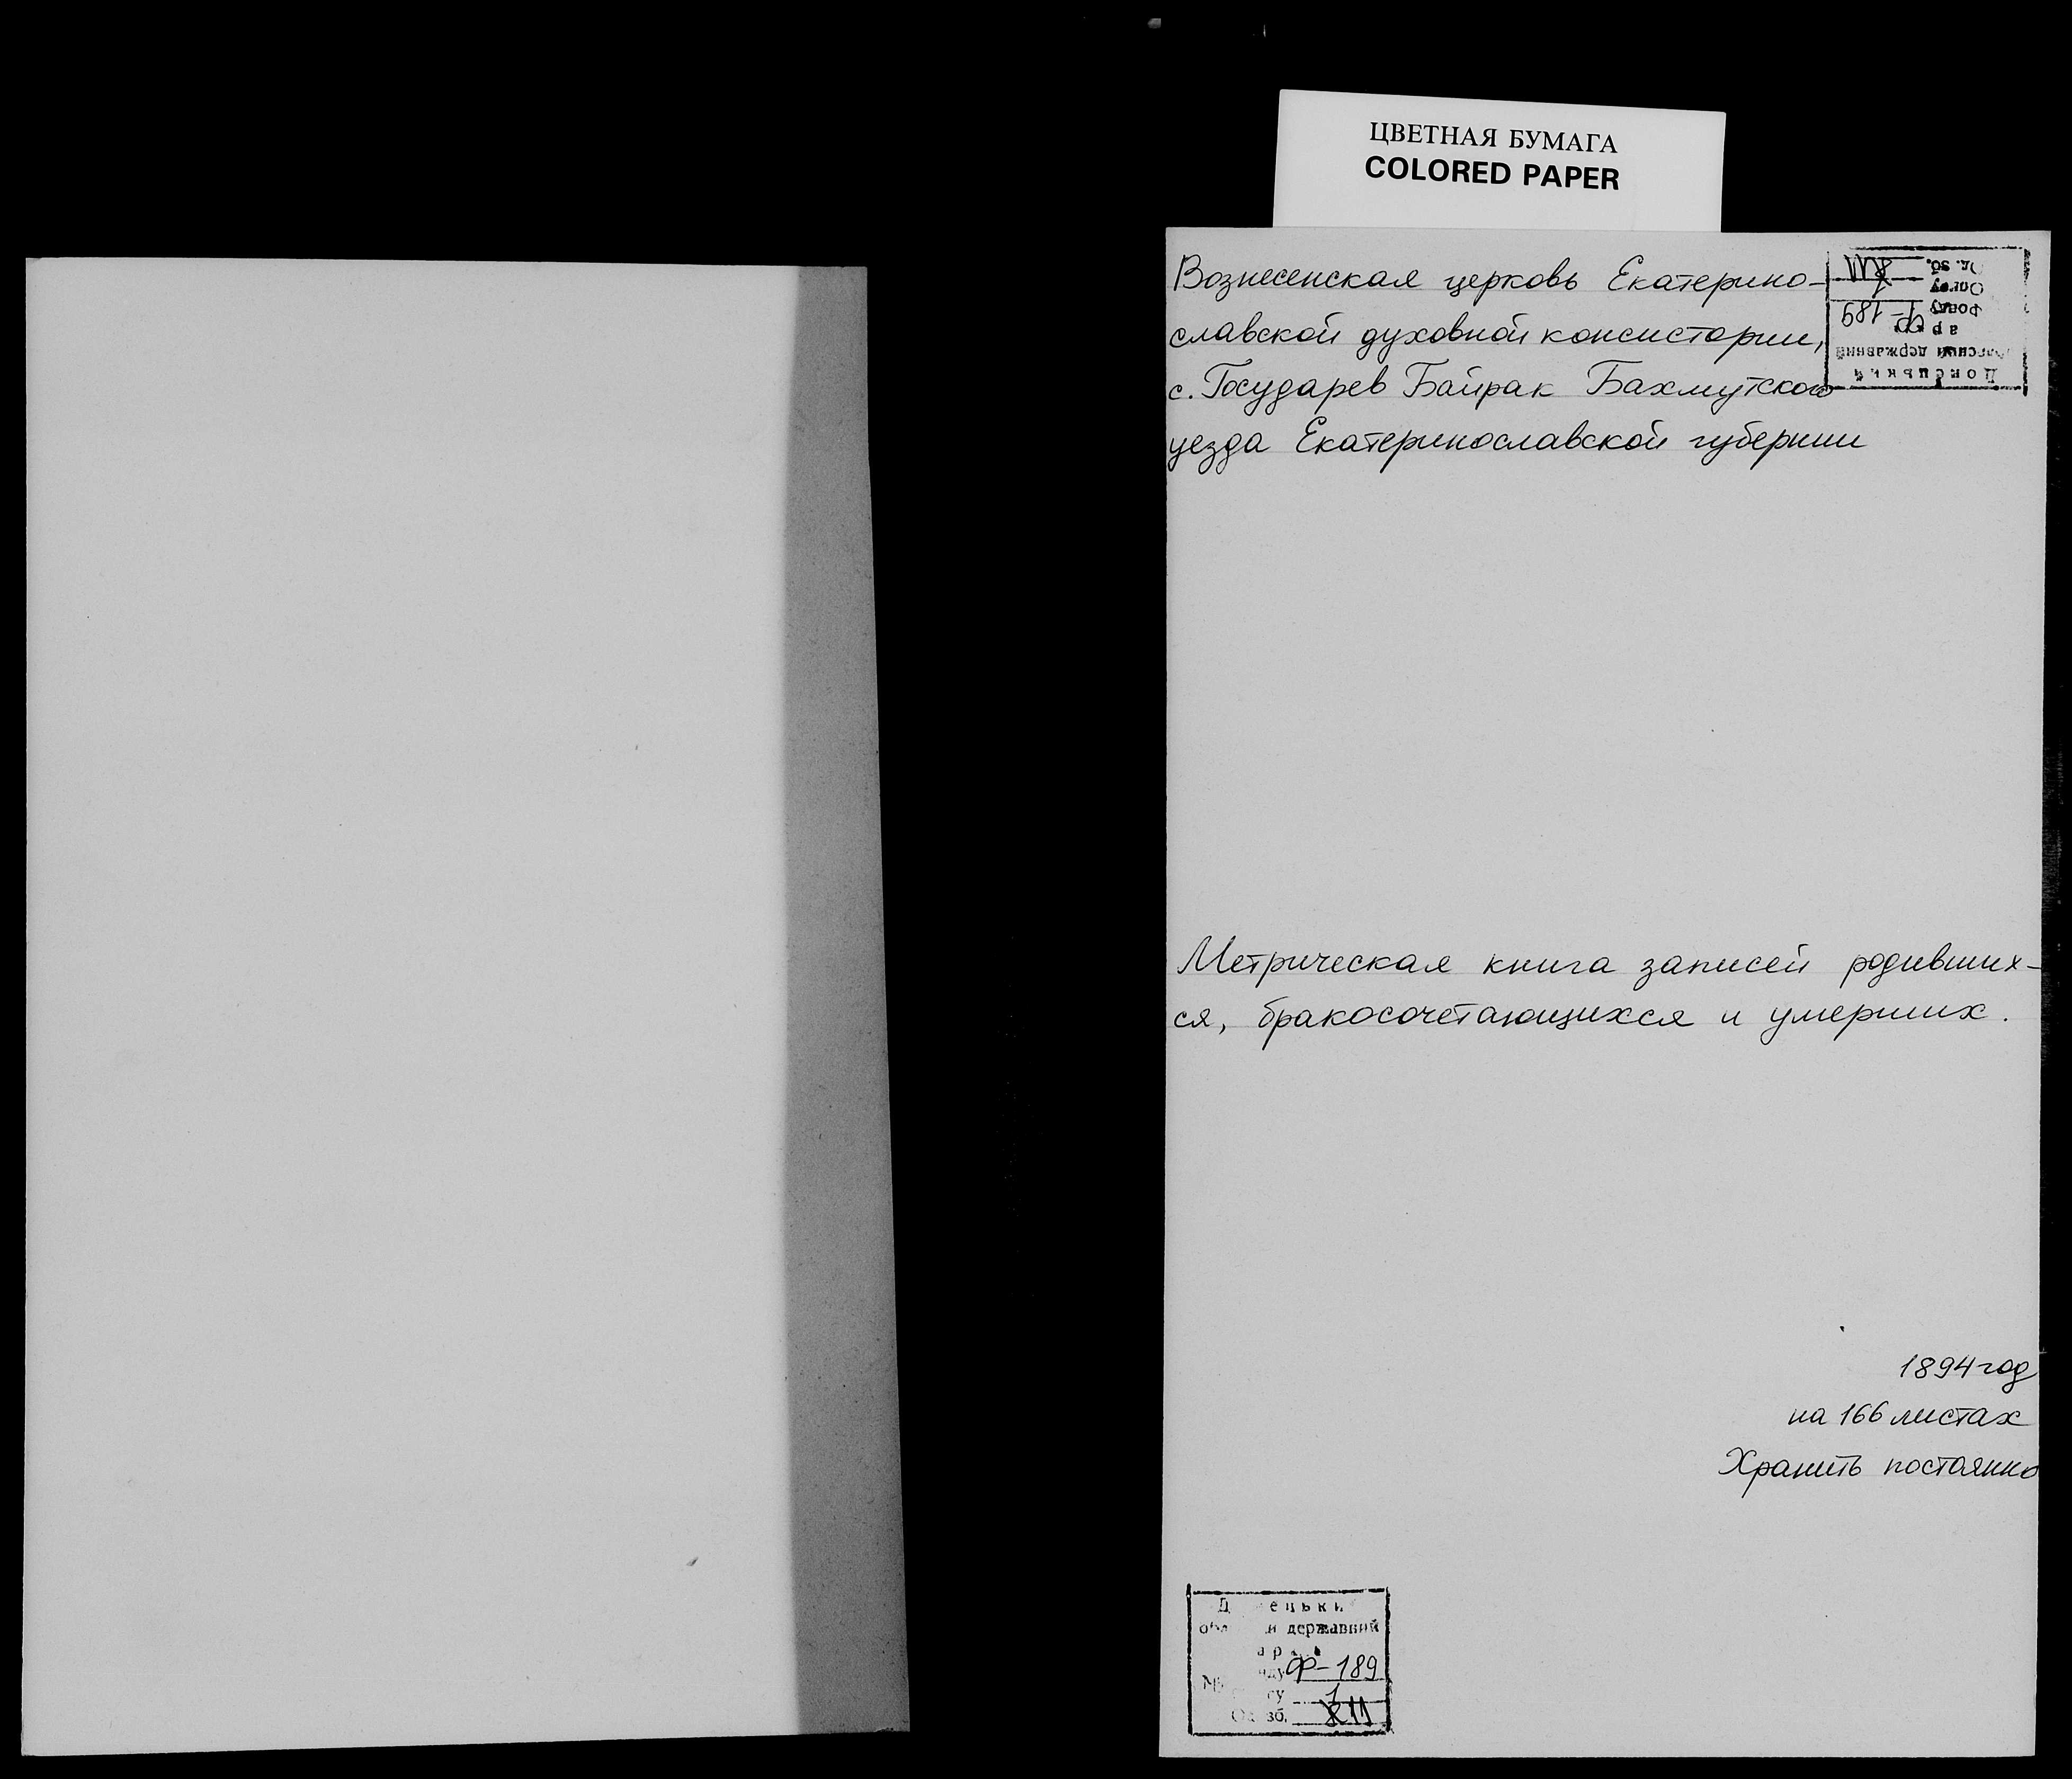 ЦВЕТНАЯ БУМАГА
COLORED PAPER
Вознесенская церковь Екатерино-
славской духовной консистории,
с. Государев Байрак Бахмутского
уезда Екатеринославской губернии
Донецький
державний
Фонду Ф-189
Опису 1
Од. зб.
Метрическая книга записей родивших-
ся, бракосочетающихся и умерших.
1894 год
на 166 листах
Хранить постоянно
державний
Ф-189
1
зб.